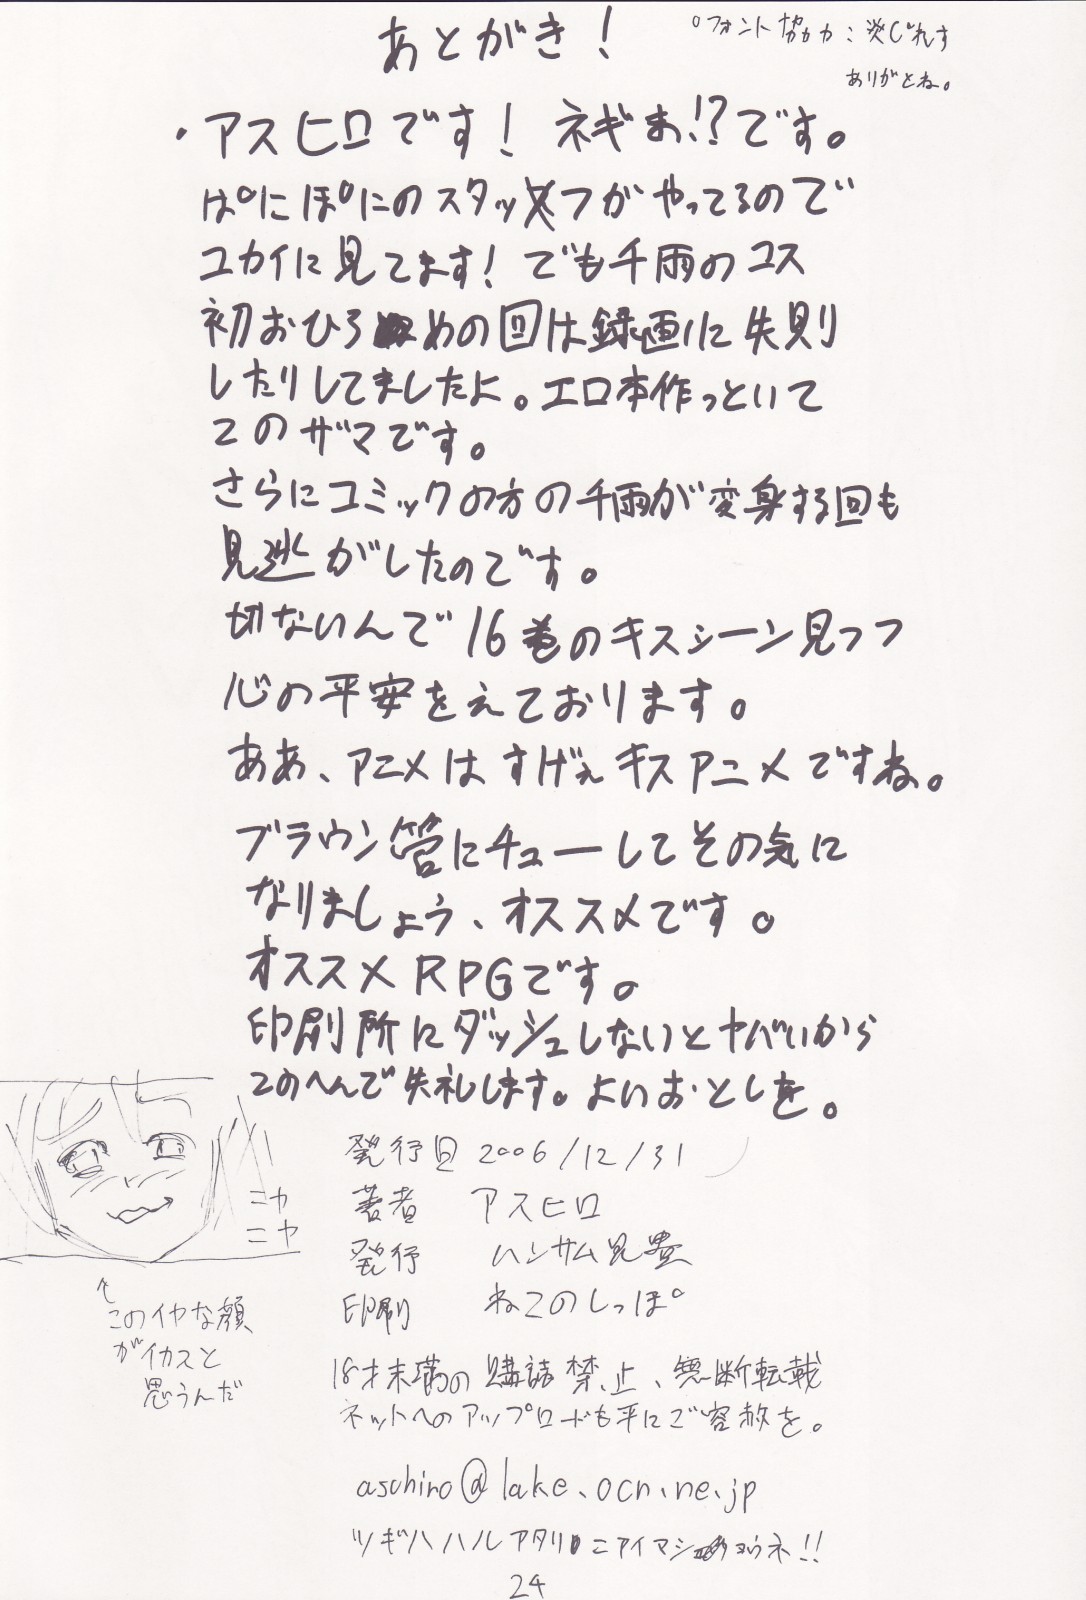 あとがき!
○フォント協力:炎じれす
ありがとね。
・アスヒロです! ネギま!?です。
ぱにぽにのスタッフがやってるので
ユカイに見てます! でも千雨のコス
初おひろめの回は録画に失敗
したりしてましたよ。エロ本作っといて
このザマです。
さらにコミックの方の千雨が変身する回も
見逃がしたのです。
切ないんで16巻のキスシーン見つつ
心の平安をえております。
ああ、アニメはすげぇキスアニメですね。
ブラウン管にチューしてその気に
なりましょう、オススメです。
オススメRPGです。
印刷所にダッシュしないとヤバいから
このへんで失礼します。よいおとしを。
ニヤ
ニヤ
↑
このイヤな顔
がイカスと
思うんだ
発行日 2006/12/31
著者 アスヒロ
発行 ハンサム兄貴
印刷 ねこのしっぽ
18才未満の購読禁止、無断転載
ネットへのアップロードも平にご容赦を。
aschiro@lake.ocn.ne.jp
ツギハハルアタリニアイマショウネ!!
24